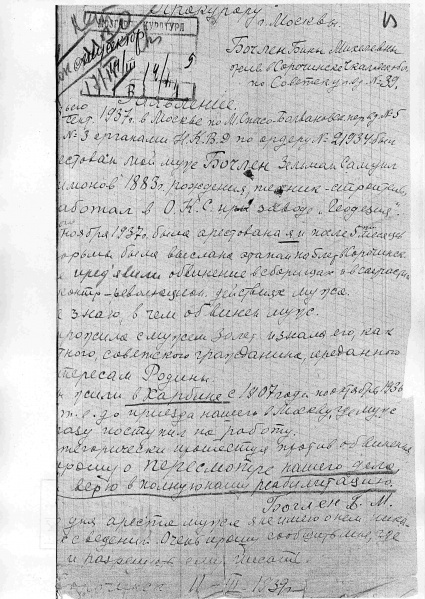 Прокурору
г. Москвы.
КУРАТУРА
Бочлен Бины Михаевны
по Советскому пр. №39.
Заявление.
1937г. в Москве по М. Спасо-Болвановск пер. д. №5
№3 органами Н.К.В.Д по ордеру №21934 был
естован мой муж Бочлен Зельман Самуил
имонов 1883г. рождения, техник-строитель,
аботал в О.К.С. при заводе "Геодезия".
ноября 1937г. была арестована я и после 5 месяцев
была выслана
предъявили обвинение
контр-революцион. действиях мужа.
е знаю, в чем обвинен муж.
прожила с мужем 30 лет и знала его, как
тного, советского гражданина, преданного
тересам Родины.
жили в Харбине с 1907 года по октябрь 1936
т.е. до приезда нашего в Москву, где муж
разу поступил на работу.
тегорически протестуя против обвинения
прошу о пересмотре нашего дела
верю в полную нашу реабилитацию.
Бочлен Б. М.
дня ареста мужа я не имею о нем ника-
х сведений. Очень прошу сообщить мне, где
и разрешено ли писать.
11-III-1939г.